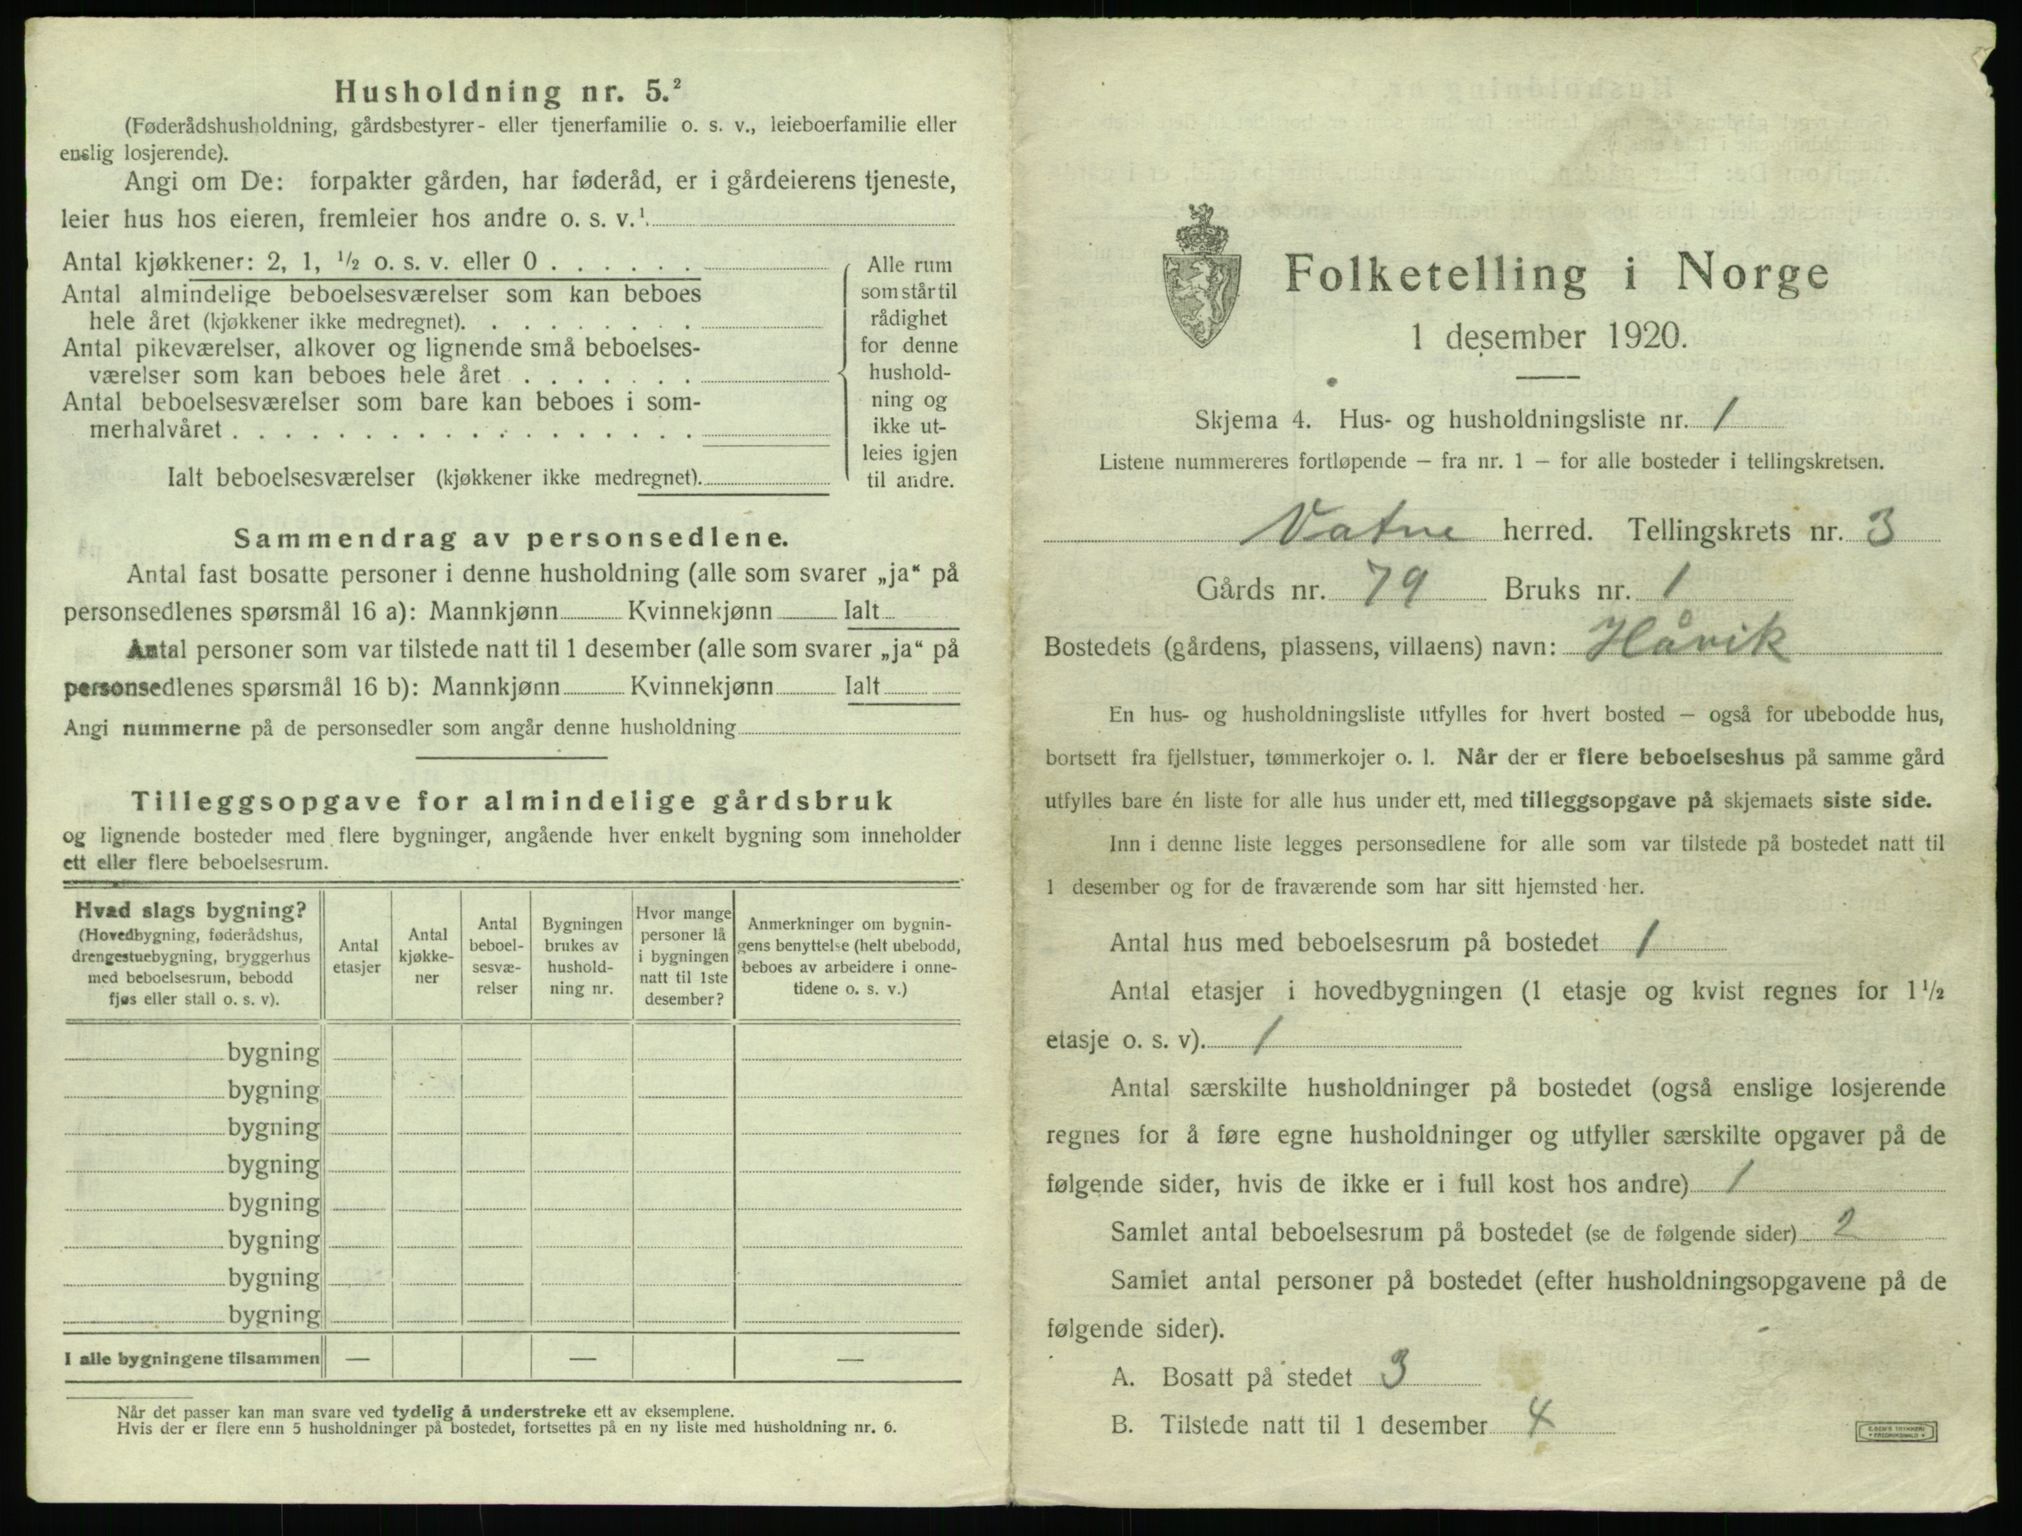 Husholdning nr. 5.²
(Føderådshusholdning, gårdsbestyrer- eller tjenerfamilie o. s. v., leieboerfamilie eller
enslig losjerende).
Angi om De: forpakter gården, har føderåd, er i gårdeierens tjeneste,
leier hus hos eieren, fremleier hos andre o. s. v.¹
Antal kjøkkener: 2, 1, ½ o. s. v. eller 0 . . . . . .
Antal almindelige beboelsesværelser som kan beboes
hele året (kjøkkener ikke medregnet). . . . . . . . .
Antal pikeværelser, alkover og lignende små beboelses-
værelser som kan beboes hele året . . . . . . .
Antal beboelsesværelser som bare kan beboes i som-
merhalvåret . . . . . . . . . . . . . . . . . .
Ialt beboelsesværelser (kjøkkener ikke medregnet).
Alle rum
som står til
rådighet
for denne
hushold-
ning og
ikke ut-
leies igjen
til andre.
Sammendrag av personsedlene.
Antal fast bosatte personer i denne husholdning (alle som svarer „ja“ på
personsedlenes spørsmål 16 a): Mannkjønn Kvinnekjønn Ialt
Antal personer som var tilstede natt til 1 desember (alle som svarer „ja“ på
personsedlenes spørsmål 16 b): Mannkjønn Kvinnekjønn Ialt
Angi nummerne på de personsedler som angår denne husholdning
Tilleggsopgave for almindelige gårdsbruk
og lignende bosteder med flere bygninger, angående hver enkelt bygning som inneholder
ett eller flere beboelsesrum.
Hvad slags bygning?
(Hovedbygning, føderådshus,
drengestuebygning, bryggerhus
med beboelsesrum, bebodd
fjøs eller stall o. s. v).
Antal
etasjer
Antal
kjøkke-
ner
Antal
beboel-
sesvæ-
relser
Bygningen
brukes av
hushold-
ning nr.
Hvor mange
personer lå
i bygningen
natt til 1ste
desember?
Anmerkninger om bygnin-
gens benyttelse (helt ubebodd,
beboes av arbeidere i onne-
tidene o. s. v.)
bygning
bygning
bygning
bygning
bygning
bygning
bygning
bygning
I alle bygningene tilsammen — — —
Når det passer kan man svare ved tydelig å understreke ett av eksemplene.
Hvis der er flere enn 5 husholdninger på bostedet, fortsettes på en ny liste med husholdning nr. 6.
Folketelling i Norge
1 desember 1920.
Skjema 4. Hus- og husholdningsliste nr. 1
Listene nummereres fortløpende — fra nr. 1 — for alle bosteder i tellingskretsen.
Vatne herred. Tellingskrets nr. 3
Gårds nr. 79 Bruks nr. 1
Bostedets (gårdens, plassens, villaens) navn: Håvik
En hus- og husholdningsliste utfylles for hvert bosted — også for ubebodde hus,
bortsett fra fjellstuer, tømmerkojer o. l. Når der er flere beboelseshus på samme gård
utfylles bare én liste for alle hus under ett, med tilleggsopgave på skjemaets siste side.
Inn i denne liste legges personsedlene for alle som var tilstede på bostedet natt til
1 desember og for de fraværende som har sitt hjemsted her.
Antal hus med beboelsesrum på bostedet 1
Antal etasjer i hovedbygningen (1 etasje og kvist regnes for 1½
etasje o. s. v). 1
Antal særskilte husholdninger på bostedet (også enslige losjerende
regnes for å føre egne husholdninger og utfyller særskilte opgaver på de
følgende sider, hvis de ikke er i full kost hos andre) 1
Samlet antal beboelsesrum på bostedet (se de følgende sider) 2
Samlet antal personer på bostedet (efter husholdningsopgavene på de
følgende sider).
A. Bosatt på stedet 3
B. Tilstede natt til 1 desember 4